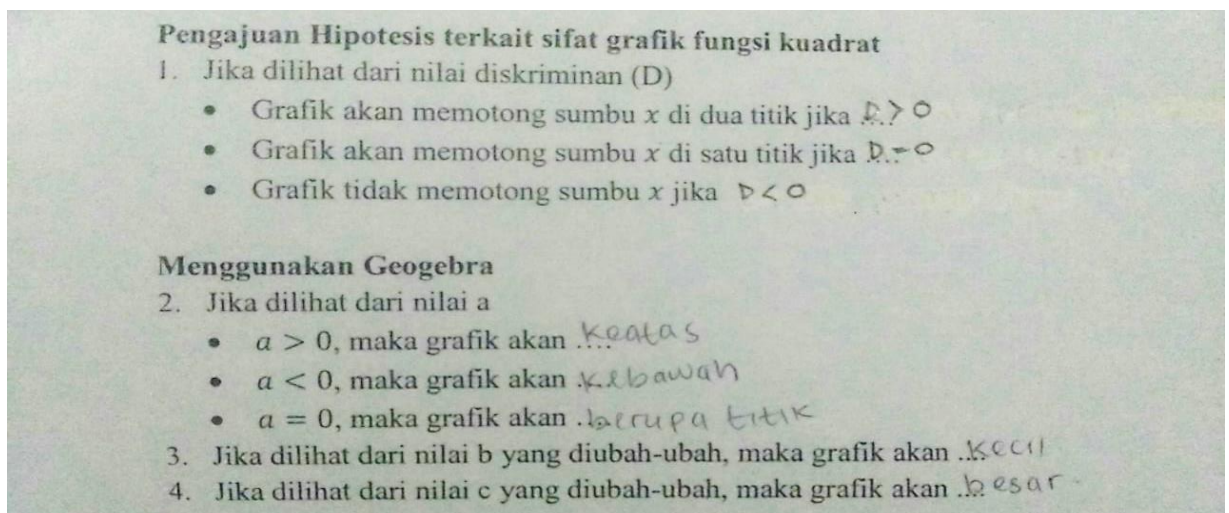 Pengajuan Hipotesis terkait sifat grafik fungsi kuadrat
1. Jika dilihat dari nilai diskriminan (D)
• Grafik akan memotong sumbu x di dua titik jika D > 0
• Grafik akan memotong sumbu x di satu titik jika D = 0
• Grafik tidak memotong sumbu x jika D < 0
Menggunakan Geogebra
2. Jika dilihat dari nilai a
• a > 0, maka grafik akan .... keatas
• a < 0, maka grafik akan . kebawah
• a = 0, maka grafik akan . berupa titik
3. Jika dilihat dari nilai b yang diubah-ubah, maka grafik akan .. kecil
4. Jika dilihat dari nilai c yang diubah-ubah, maka grafik akan .. besar